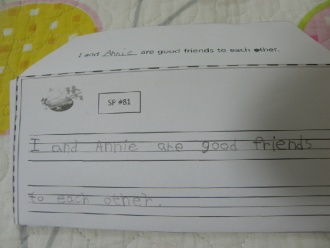 I and Annie are good friends to each other.
SF #81
I and Annie are good friends
to each other.